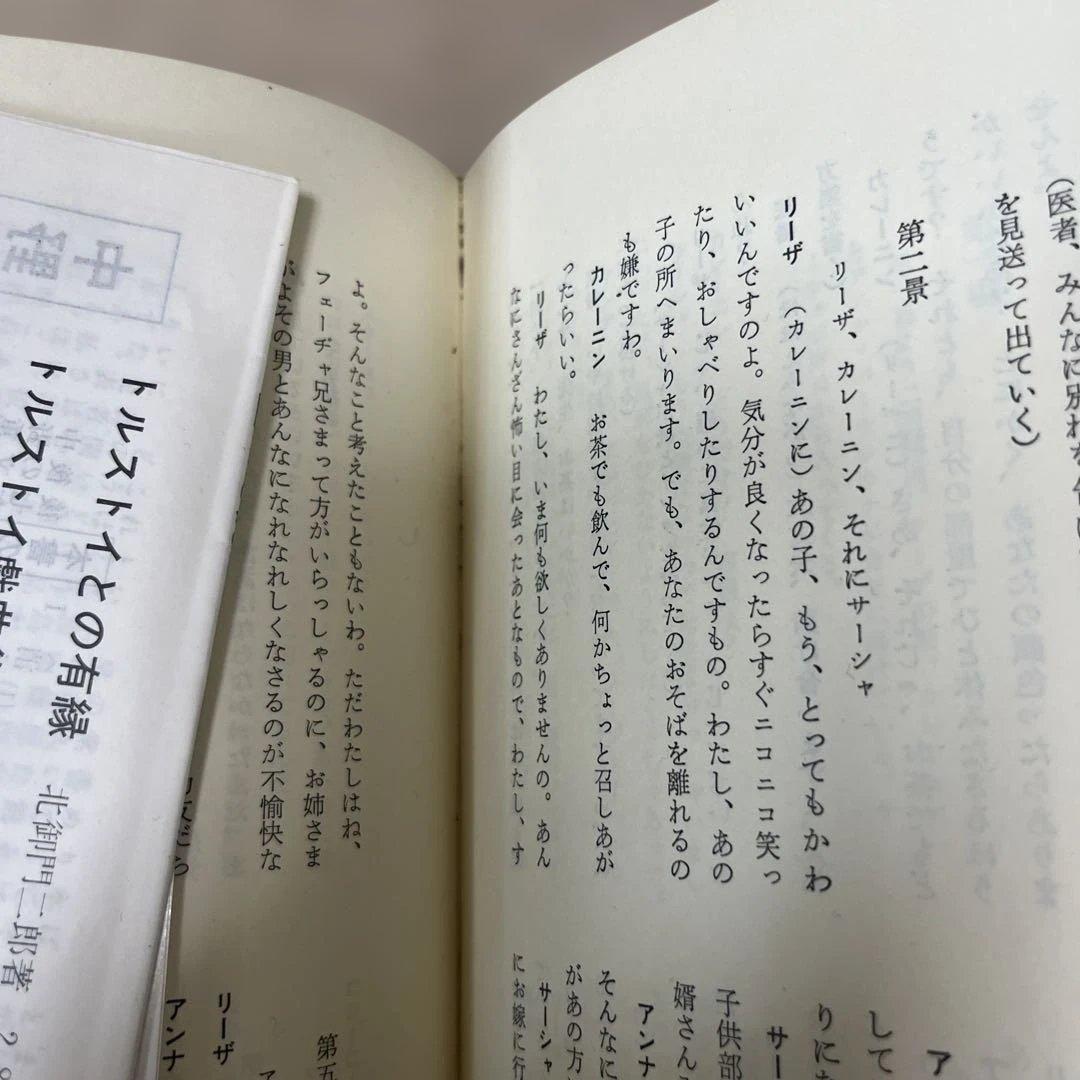 (医者、みんなに別れを告げ
を見送って出ていく)
第二景
リーザ、カレーニン、それにサーシャ
リーザ (カレーニンに)あの子、もう、とってもかわ
いいんですのよ。気分が良くなったらすぐニコニコ笑っ
たり、おしゃべりしたりするんですもの。わたし、あの
子の所へまいります。でも、あなたのおそばを離れるの
も嫌ですわ。
カレーニン お茶でも飲んで、何かちょっと召しあが
ったらいい。
リーザ わたし、いま何も欲しくありませんの。あん
なにさんざん怖い目に会ったあとなもので、わたし、す
ア
して
りにな
サー
子供部
婿さんこ
アンナ
そんなに
があの方
サーシャ
にお嫁に行
よ。そんなこと考えたこともないわ。ただわたしはね、
フェーヂャ兄さまって方がいらっしゃるのに、お姉さま
がよその男とあんなになれなれしくなさるのが不愉快な
第五
リーザ
アンナ
トルストイとの有縁
北御門二郎著
トルストイ戯曲